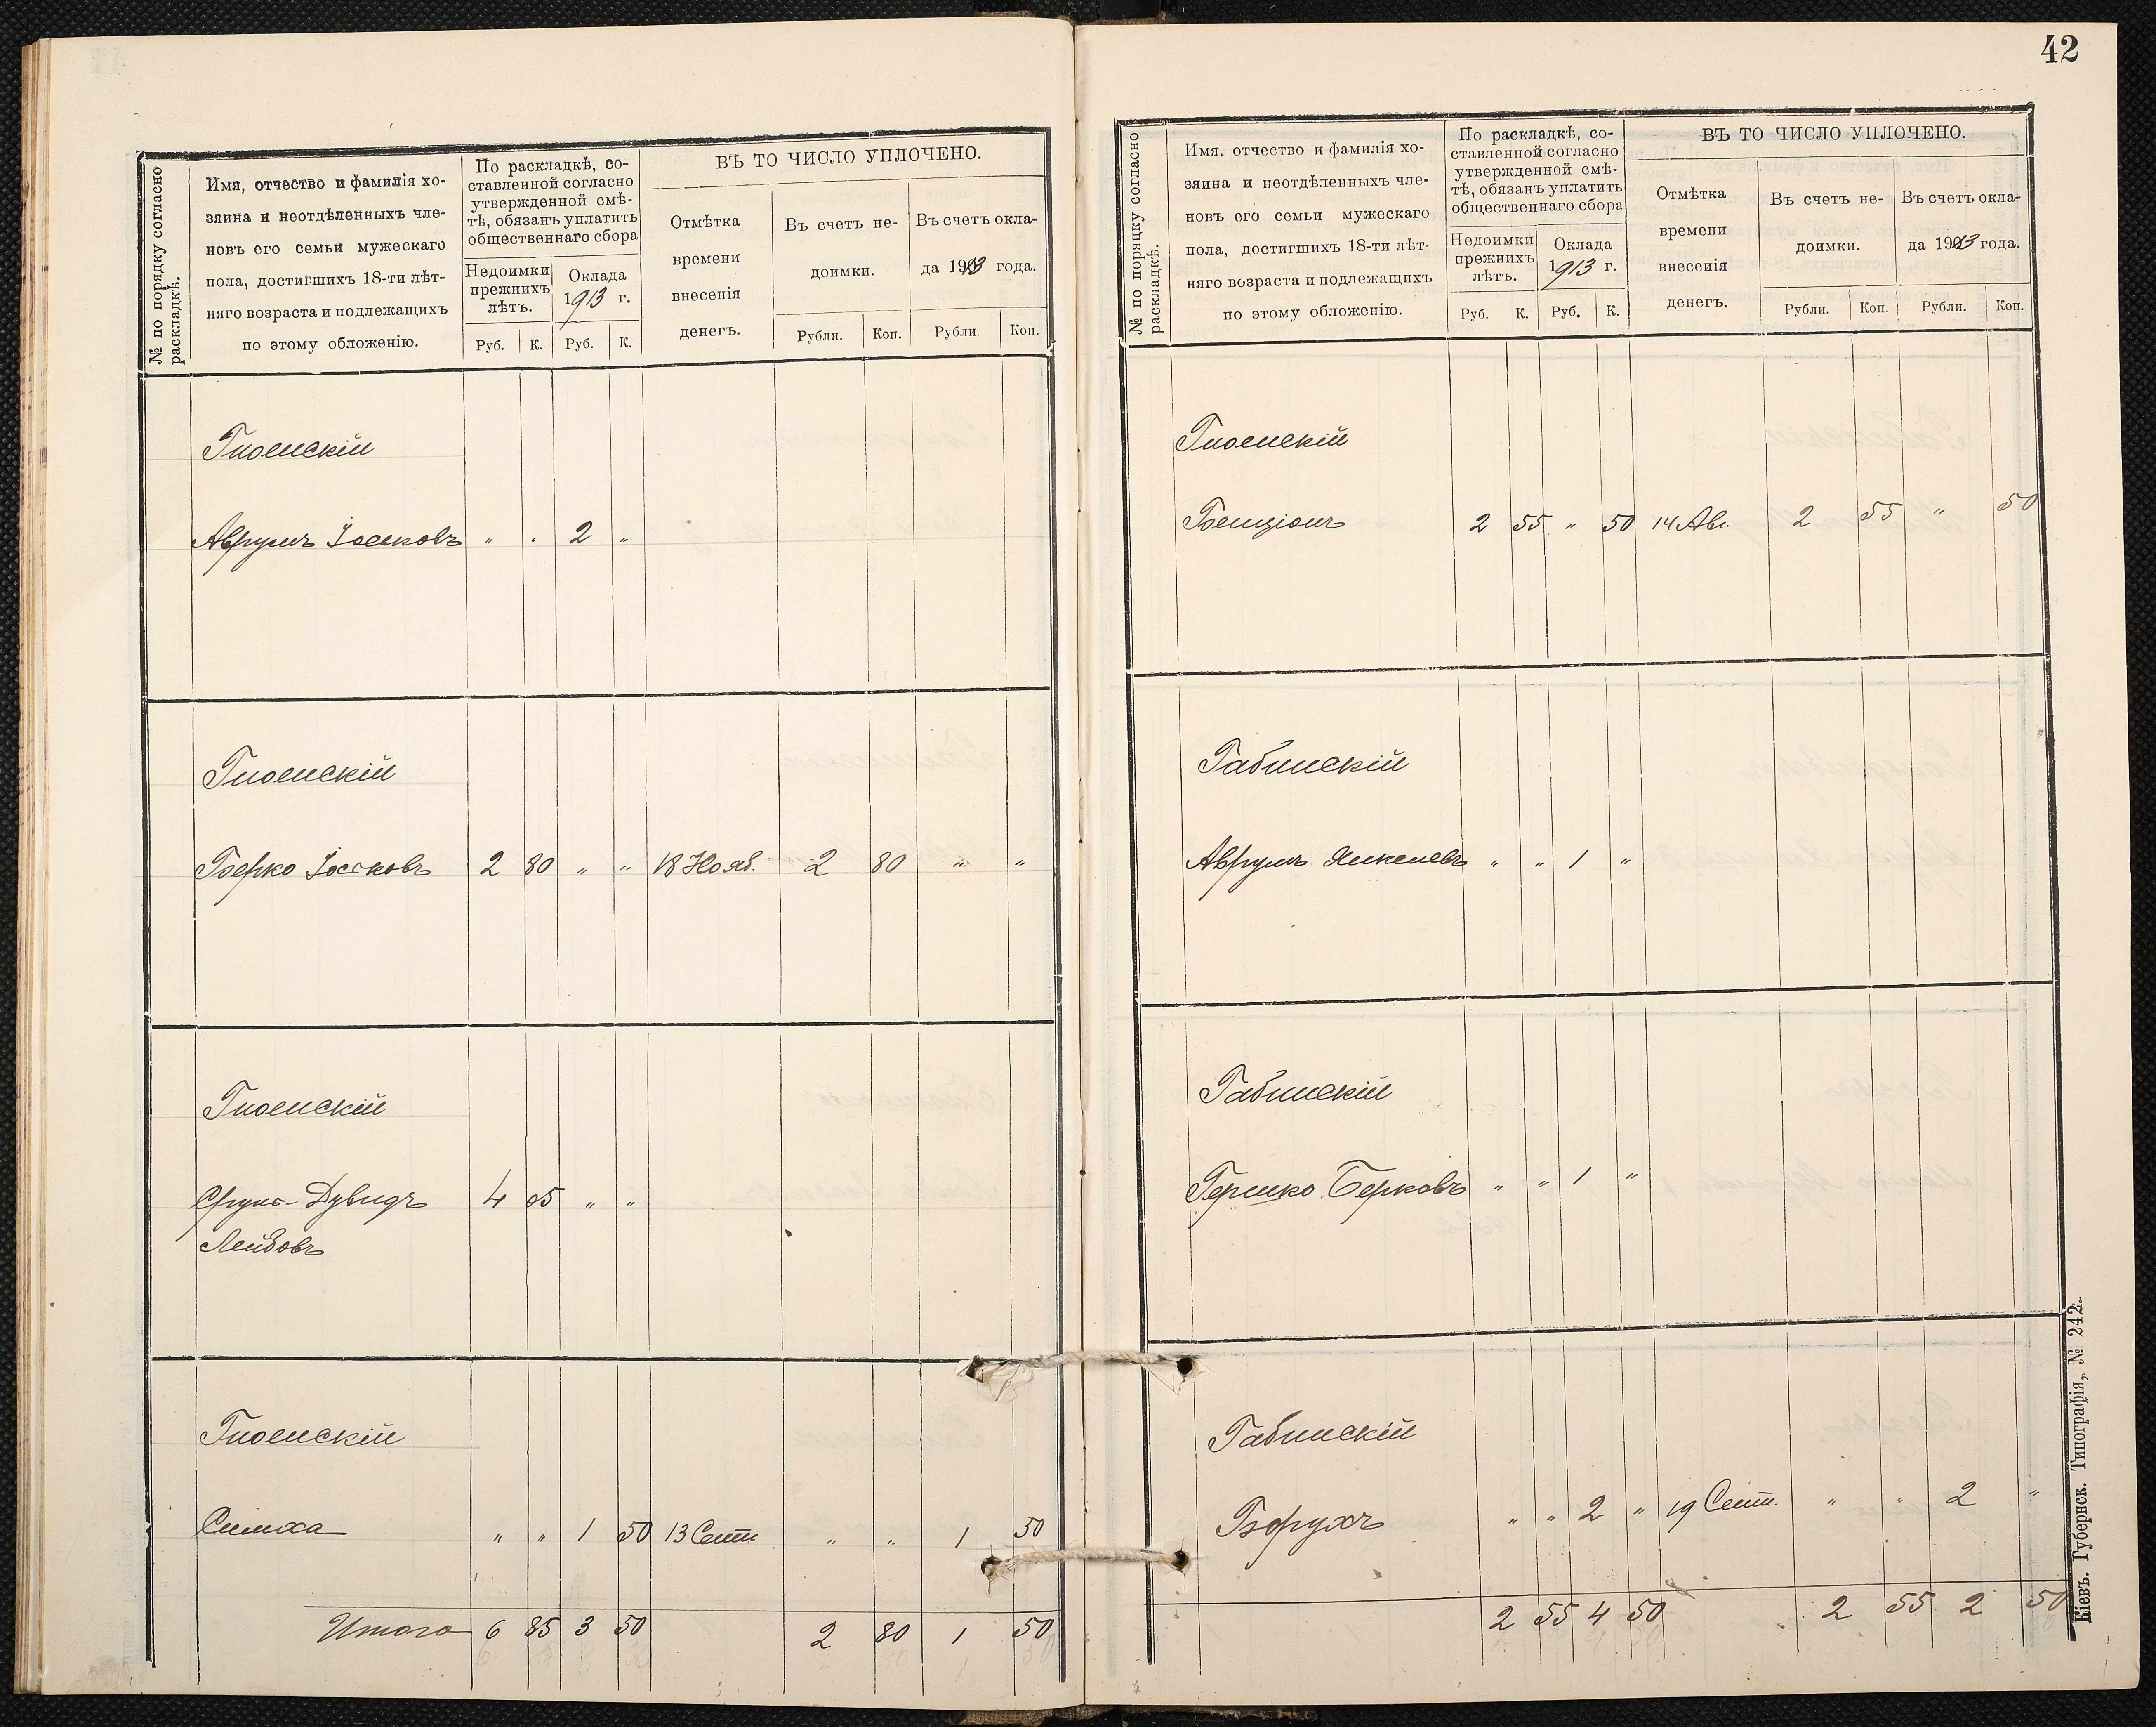 № по порядку согласно
раскладкѣ.
Имя, отчество и фамилія хо-
зяина и неотдѣленныхъ чле-
новъ его семьи мужескаго
пола, достигшихъ 18-ти лѣт-
няго возраста и подлежащихъ
по этому обложенію.
По раскладкѣ, со-
ставленной согласно
утвержденной смѣ-
тѣ, обязанъ уплатить
общественнаго сбора
Недоимки
прежнихъ
лѣтъ.
Оклада
1913 г.
Руб. К. Руб. К.
ВЪ ТО ЧИСЛО УПЛОЧЕНО.
Отмѣтка
времени
внесенія
денегъ.
Въ счетъ не-
доимки.
Рубли. Коп.
Въ счетъ окла-
да 1913 года.
Рубли. Коп.
Гноенскій
Аврумъ Іоськовъ " " 2 "
Гноенскій
Берко Іоськовъ 2 80 " " 18 Нояб. 2 80 " "
Гноенскій
Сруль-Дувидъ 4 05 " "
Лейбовъ
Гноенскій
Симха " " 1 50 13 Сент. " " 1 50
Итого 6 85 3 50 2 80 1 50
42
№ по порядку согласно
раскладкѣ.
Имя, отчество и фамилія хо-
зяина и неотдѣленныхъ чле-
новъ его семьи мужескаго
пола, достигшихъ 18-ти лѣт-
няго возраста и подлежащихъ
по этому обложенію.
По раскладкѣ, со-
ставленной согласно
утвержденной смѣ-
тѣ, обязанъ уплатить
общественнаго сбора
Недоимки
прежнихъ
лѣтъ.
Оклада
1913 г.
Руб. К. Руб. К.
ВЪ ТО ЧИСЛО УПЛОЧЕНО.
Отмѣтка
времени
внесенія
денегъ.
Въ счетъ не-
доимки.
Рубли. Коп.
Въ счетъ окла-
да 1913 года.
Рубли. Коп.
Гноенскій
Бенціонъ 2 55 " 50 14 Авг. 2 55 " 50
Габинскій
Аврумъ Янкелевъ " " 1 "
Габинскій
Гершко Берковъ " " 1 "
Габинскій
Борухъ " " 2 " 19 Сент. " " 2 "
2 55 4 50 2 55 2 50
Кіевъ. Губернск. Типографія, № 242.